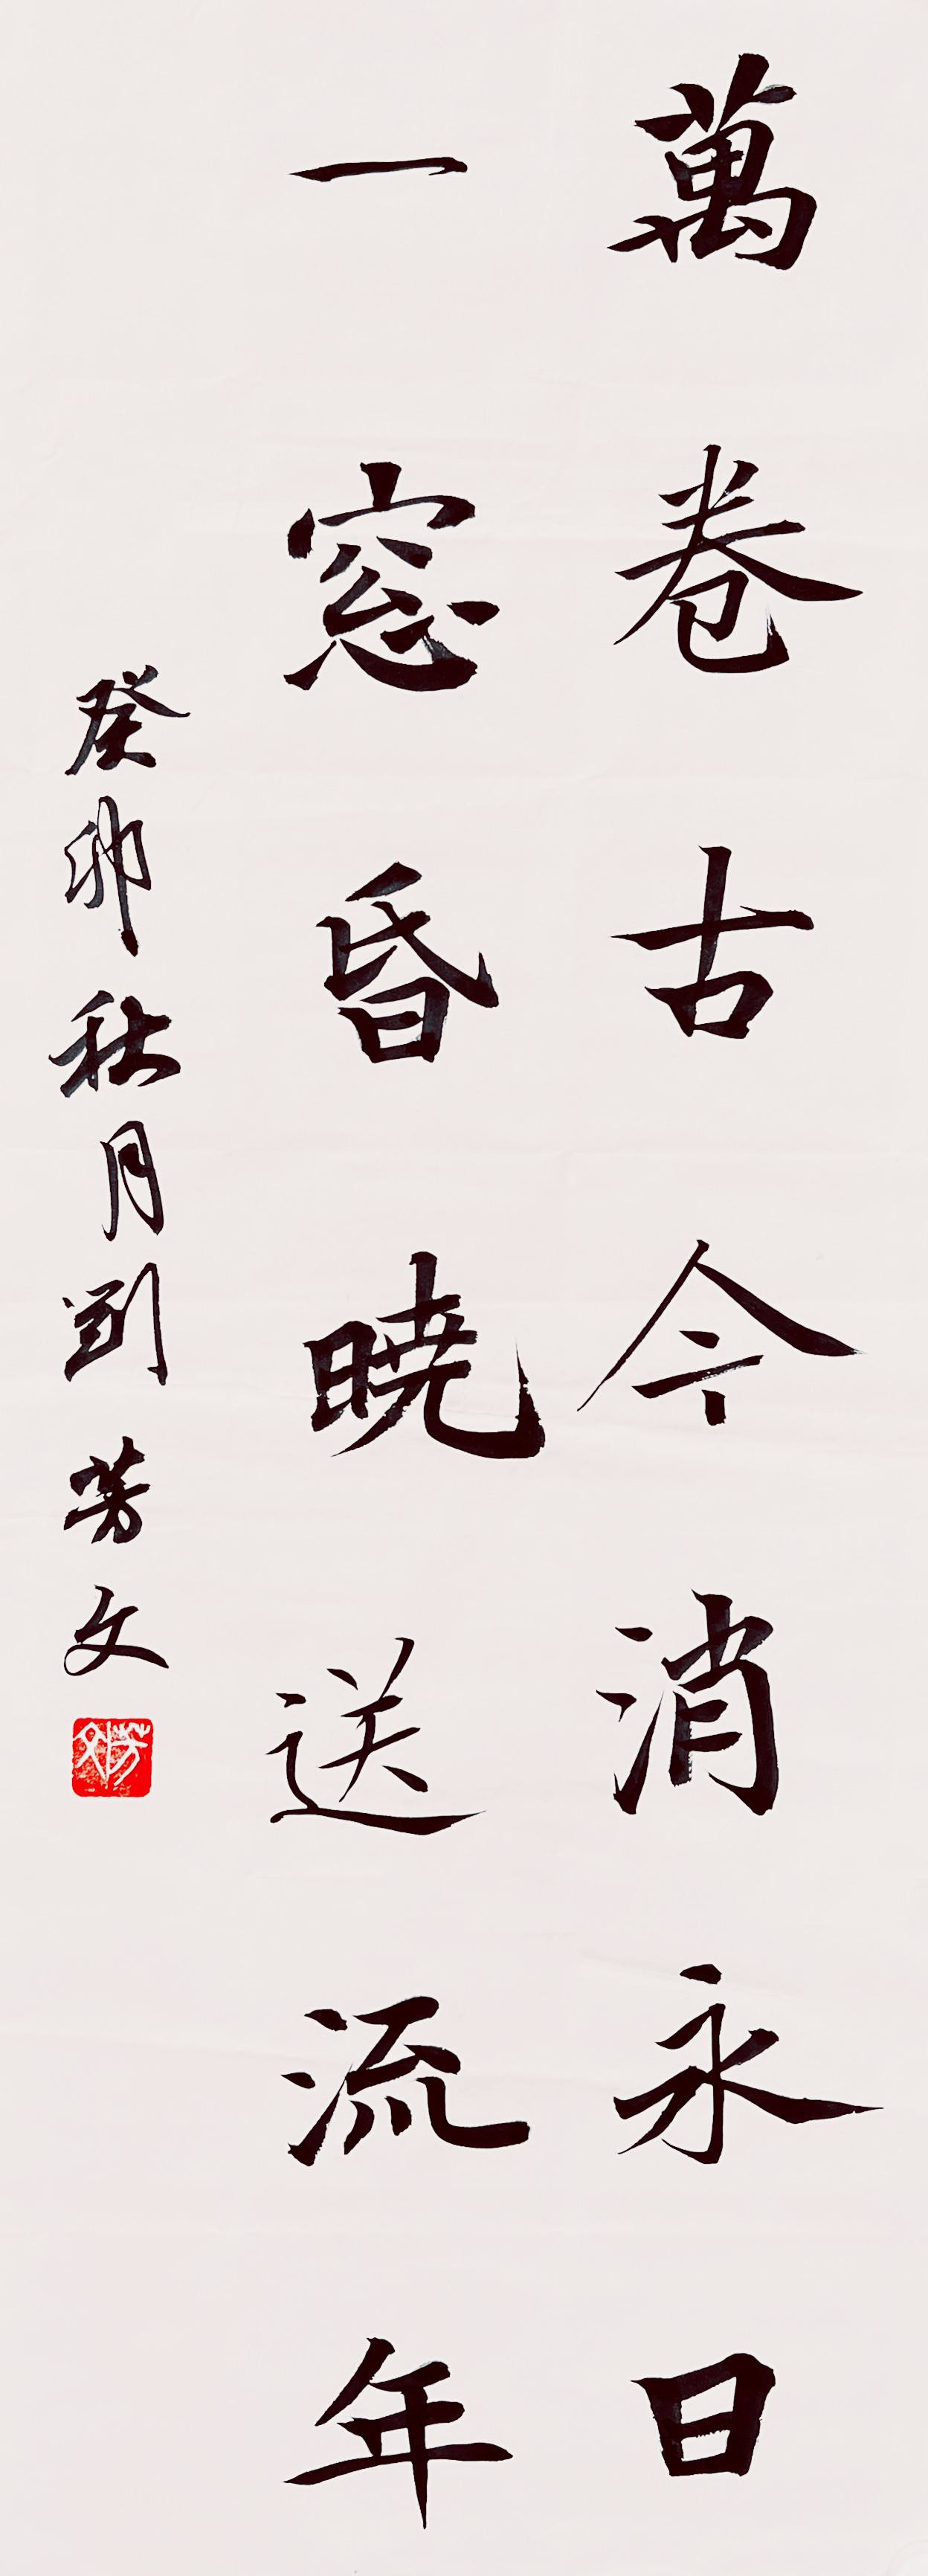 萬卷古今消永日
一窓昏曉送流年
癸卯秋月劉芳文
芳文